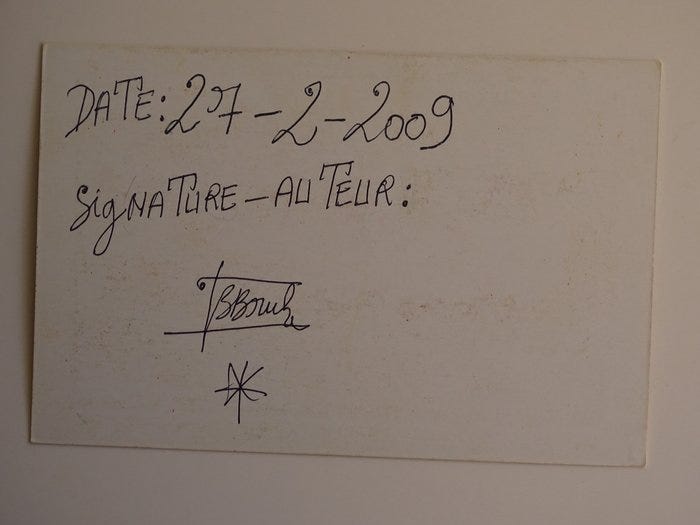 DATE: 27-2-2009
SIGNATURE-AUTEUR: